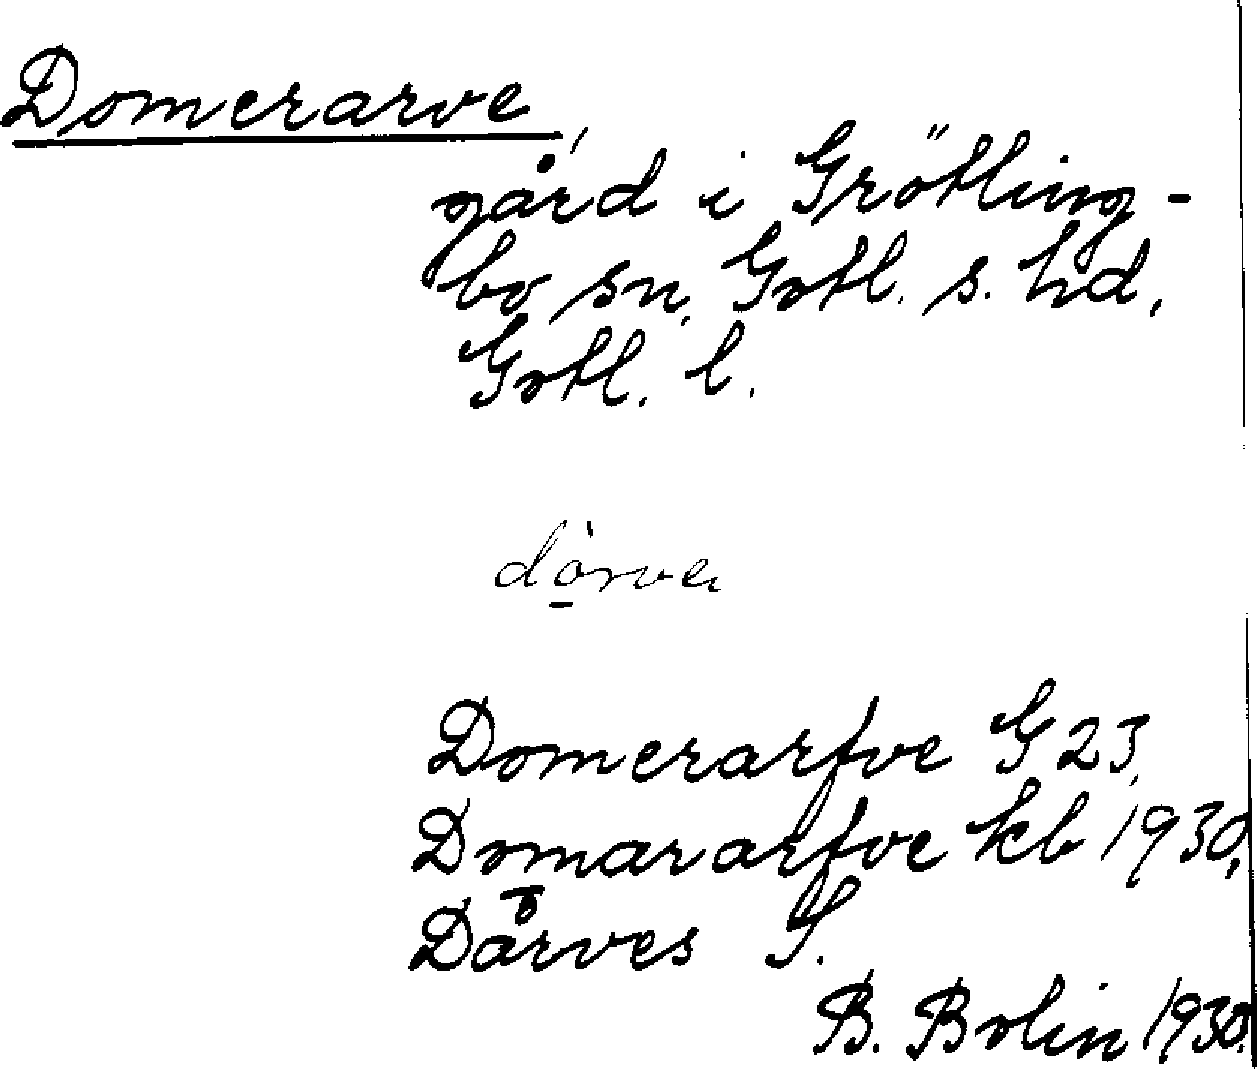 Domerarve,
gård i Grötling-
bo sn, Gotl. s. hd,
Gotl. l.
dò̱rve
Domerarfve G 23,
Domararfve kb 1930,
Då̄rves S.
B. Bolin 1930.